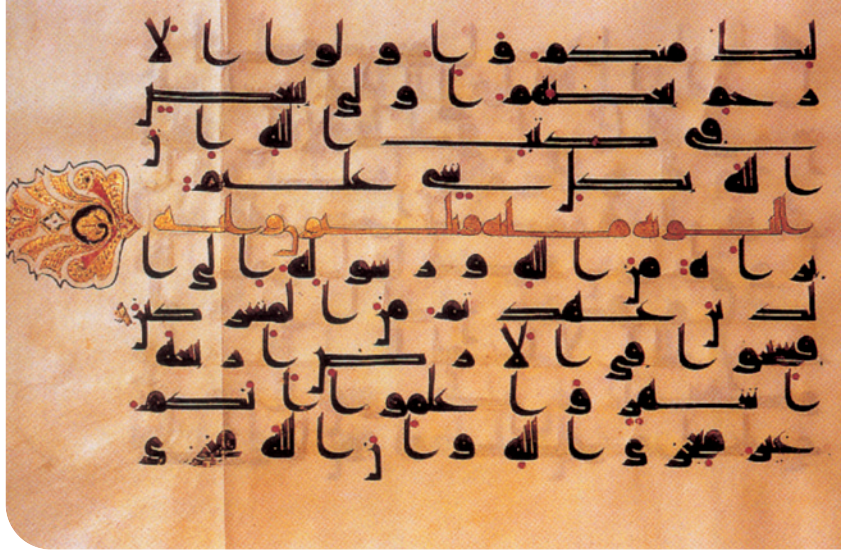 لئك منكم واولوا الا
رحم بعضهم اولى ببعض
في كتب الله ان
الله بكل شي عليم
التوبه مايه وثلثون ايه
براة من الله ورسوله الى ا
لذين عهدتم من المشركين
فسيحوا في الارض اربعة
اشهر واعلموا انكم
غير معجزي الله وان الله مخزي